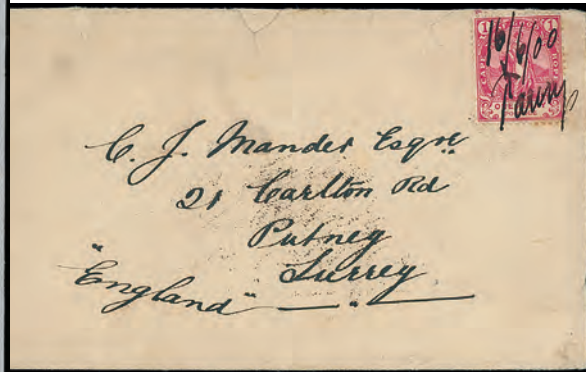 16/6/00
1 1
C. J. Mander Esqre.
21 Carlton Rd
Putney
Surrey
"England"